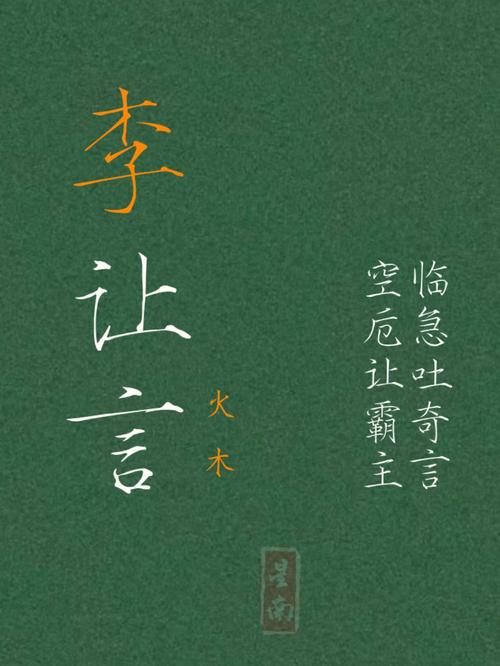 李让言
火木
临急吐奇言
空卮让霸主
星南